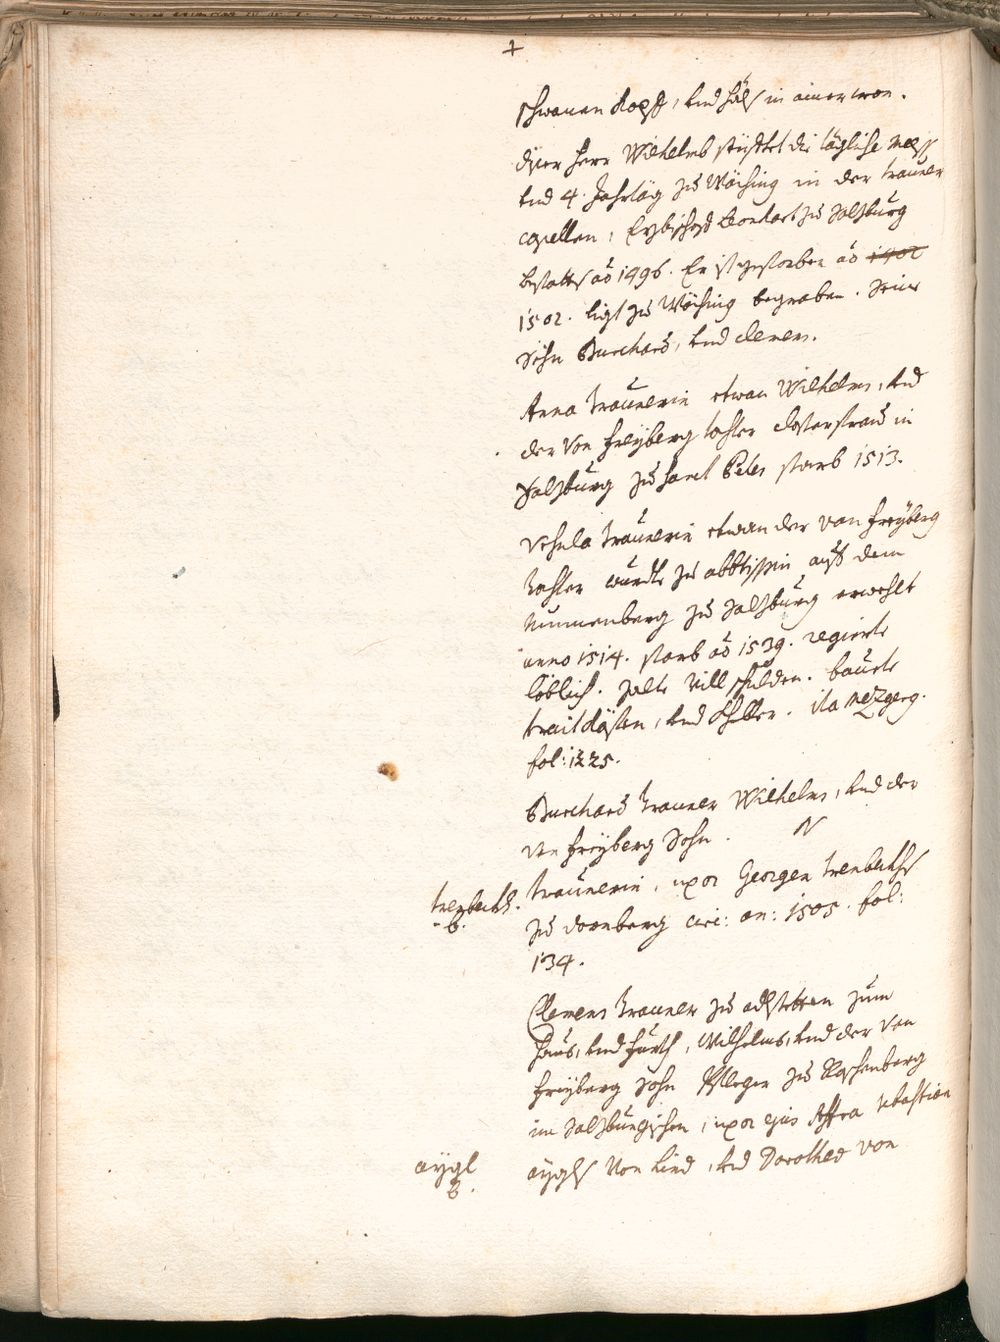 +
schwanen Kopf, und Hälß in ainer cron.
diser Herr Wilhelmb stüfftet die tägliche Mess
und 4. Jahrtäg zu Wäching in der trauner
capellen, Erzbischof Leonhart zu Salzburg
bestatts aõ 1496. Er ist gestorben aõ 1402
1502. ligt zu Wäching begraben. seine
Söhn Burchard, und Clemens.
Anna Traunerin etwan Wilhelms, und
der von Freyberg tochter closterfrau in
Salzburg zu Sanct Peter starb 1513.
Ursula Traunerin etwan der von Freyberg
Tochter wurdte zu abbtissin auf dem
Nunnenberg zu Salzburg erwehlt
anno 1514. starb aõ 1539. regierte
löblich. zalte vill schulden. bauete
traitkästen, und Kheller. ita Mezgerg.
fol: 1225.
Burchard Trauner Wilhelms, und der
von Freyberg Sohn. N
trenbeckh. Traunerin, uxor Georgen trenbeckhs
B. zu dornberg circ: an: 1505. fol:
134.
Clemens Trauner zu adlstetten zum
Haus, und Furth, Wilhelms, und der von
Freyberg Sohn Pfleger zu Raschenberg
im Salzburgischen, uxor ejus Affra Sebastian
aygl aygls von Lind, und Dorothea von
B.